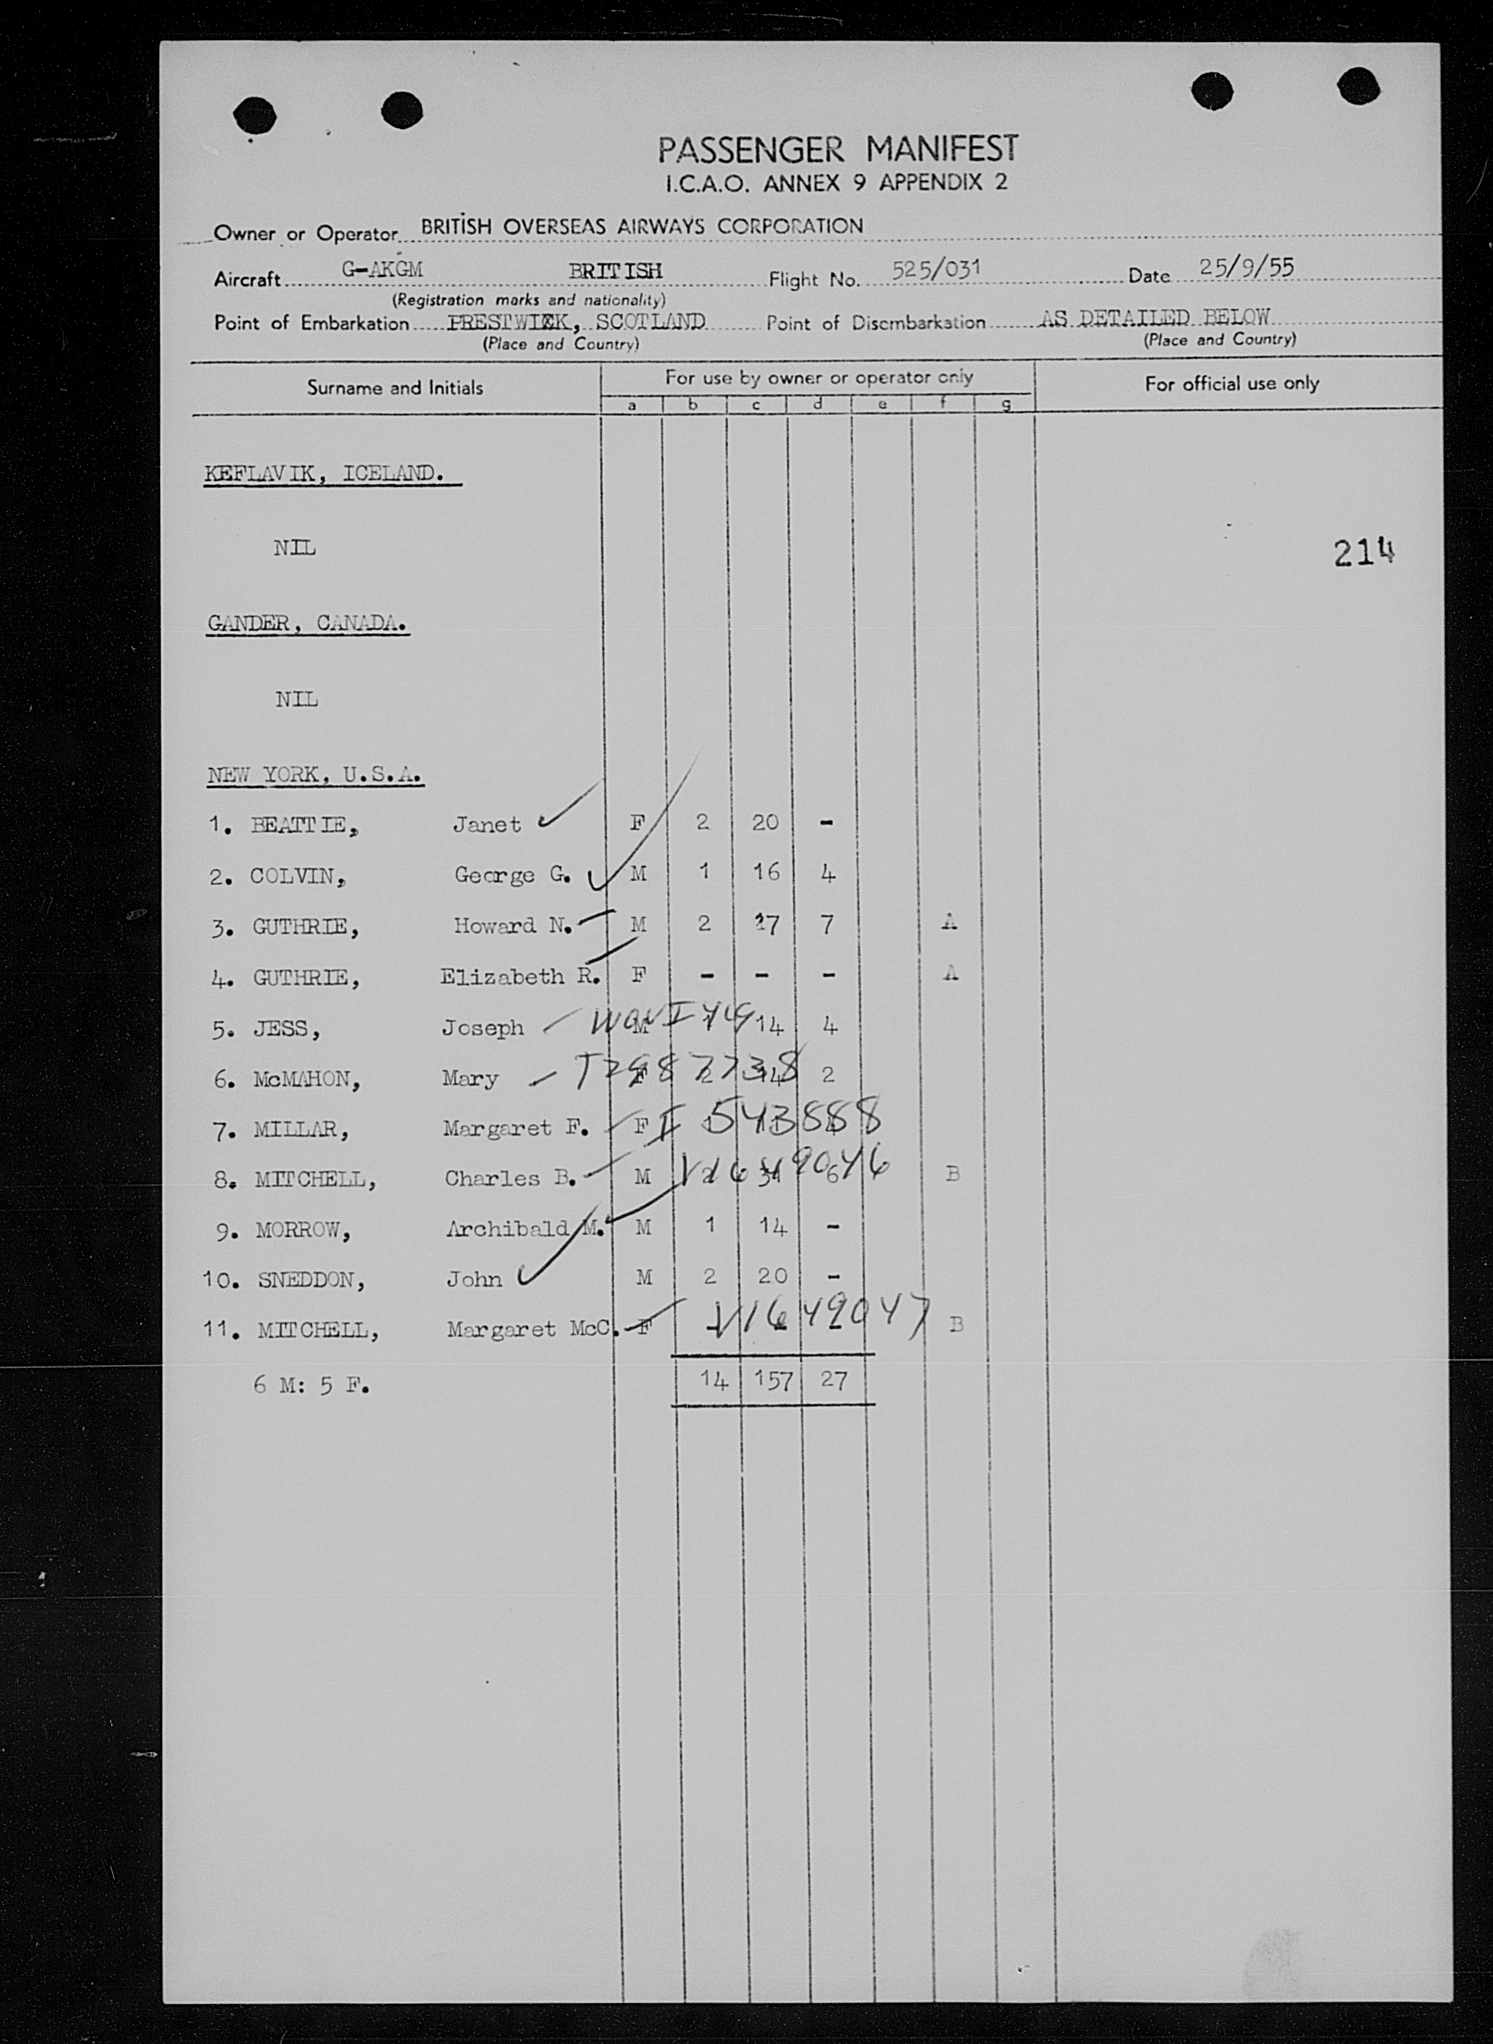 PASSENGER MANIFEST
I.C.A.O. ANNEX 9 APPENDIX 2
Owner or Operator BRITISH OVERSEAS AIRWAYS CORPORATION
Aircraft G-AKGM BRITISH Flight No. 525/031 Date 25/9/55
(Registration marks and nationality)
Point of Embarkation PRESTWICK, SCOTLAND Point of Disembarkation AS DETAILED BELOW
(Place and Country) (Place and Country)
Surname and Initials For use by owner or operator only For official use only
a b c d e f g
KEFLAVIK, ICELAND.
NIL 214
GANDER, CANADA.
NIL
NEW YORK, U.S.A.
1. BEATTIE, Janet F 2 20 -
2. COLVIN, George G. M 1 16 4
3. GUTHRIE, Howard N. M 2 27 7 A
4. GUTHRIE, Elizabeth R. F - - - A
5. JESS, Joseph M 14 4
6. McMAHON, Mary F 2 14 2
7. MILLAR, Margaret F. F I 543888
8. MITCHELL, Charles B. M V1649046 2 6 B
9. MORROW, Archibald M. M 1 14 -
10. SNEDDON, John M 2 20 -
11. MITCHELL, Margaret McC. F V1649047 B
6 M: 5 F. 14 157 27